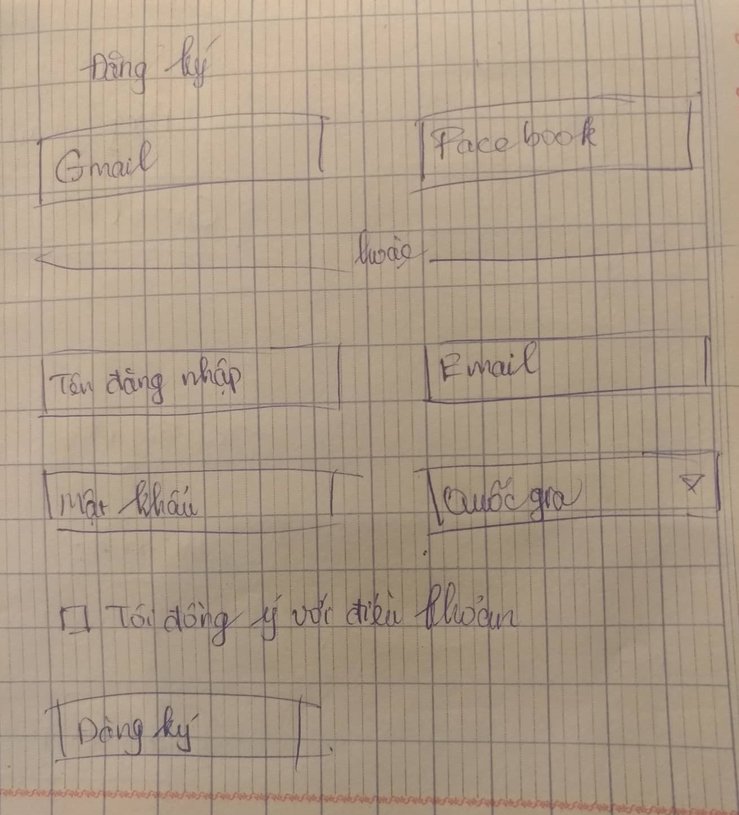 Đăng ký
Gmail
Facebook
hoặc
Tên đăng nhập
Email
Mật khẩu
Quốc gia
Tôi đồng ý với điều khoản
Đăng ký